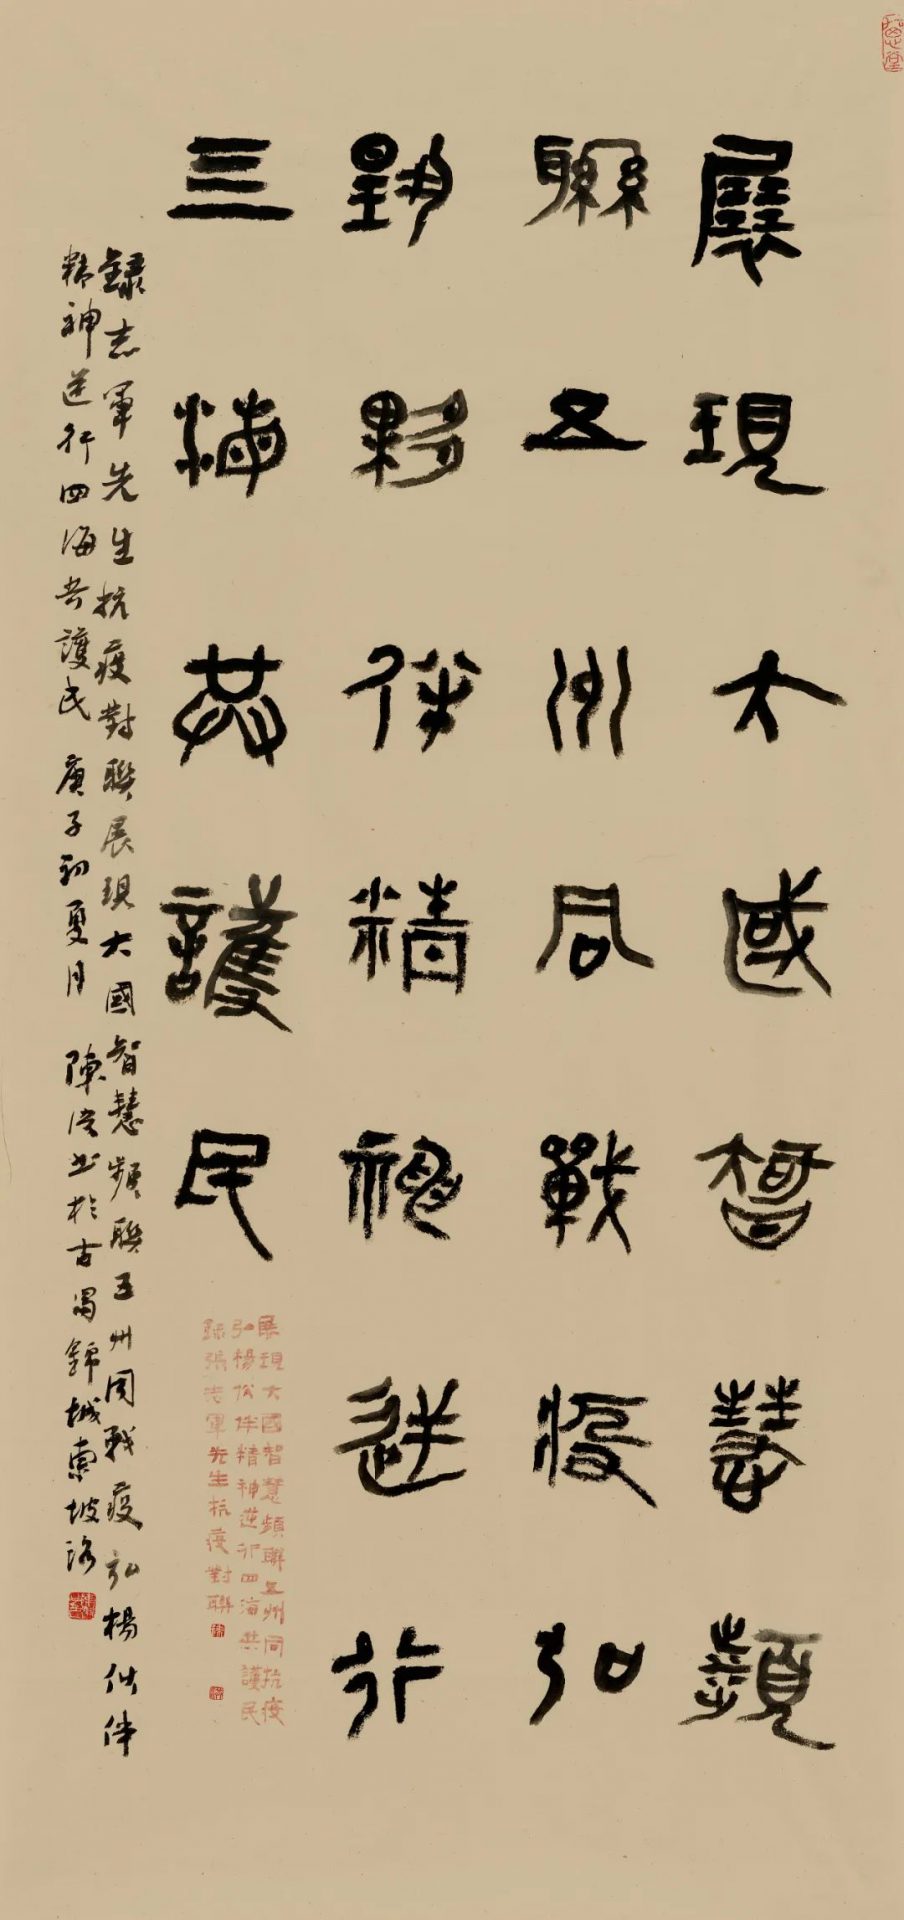 展現大國智慧頻
聯五州同戰疫弘
揚夥伴精神逆行
亖海共護民
展現大國智慧頻聯五州同抗疫
弘楊伙伴精神逆行四海共護民
錄張志軍先生抗疫對聯
錄志軍先生抗疫對聯展現大國智慧頻聯五州同戰疫弘楊伙伴
精神逆行四海共護民 庚子初夏月 陳書於古蜀錦城東坡路